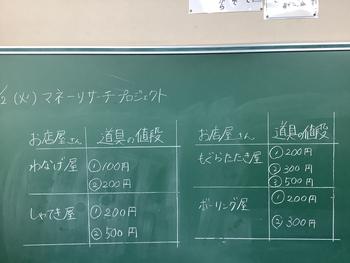 /2 (火) マネーリサーチプロジェクト
お店屋さん 道具の値段
わなげ屋 ①100円
②200円
しゃてき屋 ①200円
②500円
お店屋さん 道具の値段
もぐらたたき屋 ①200円
②300円
③500円
ボーリング屋 ①200円
②300円